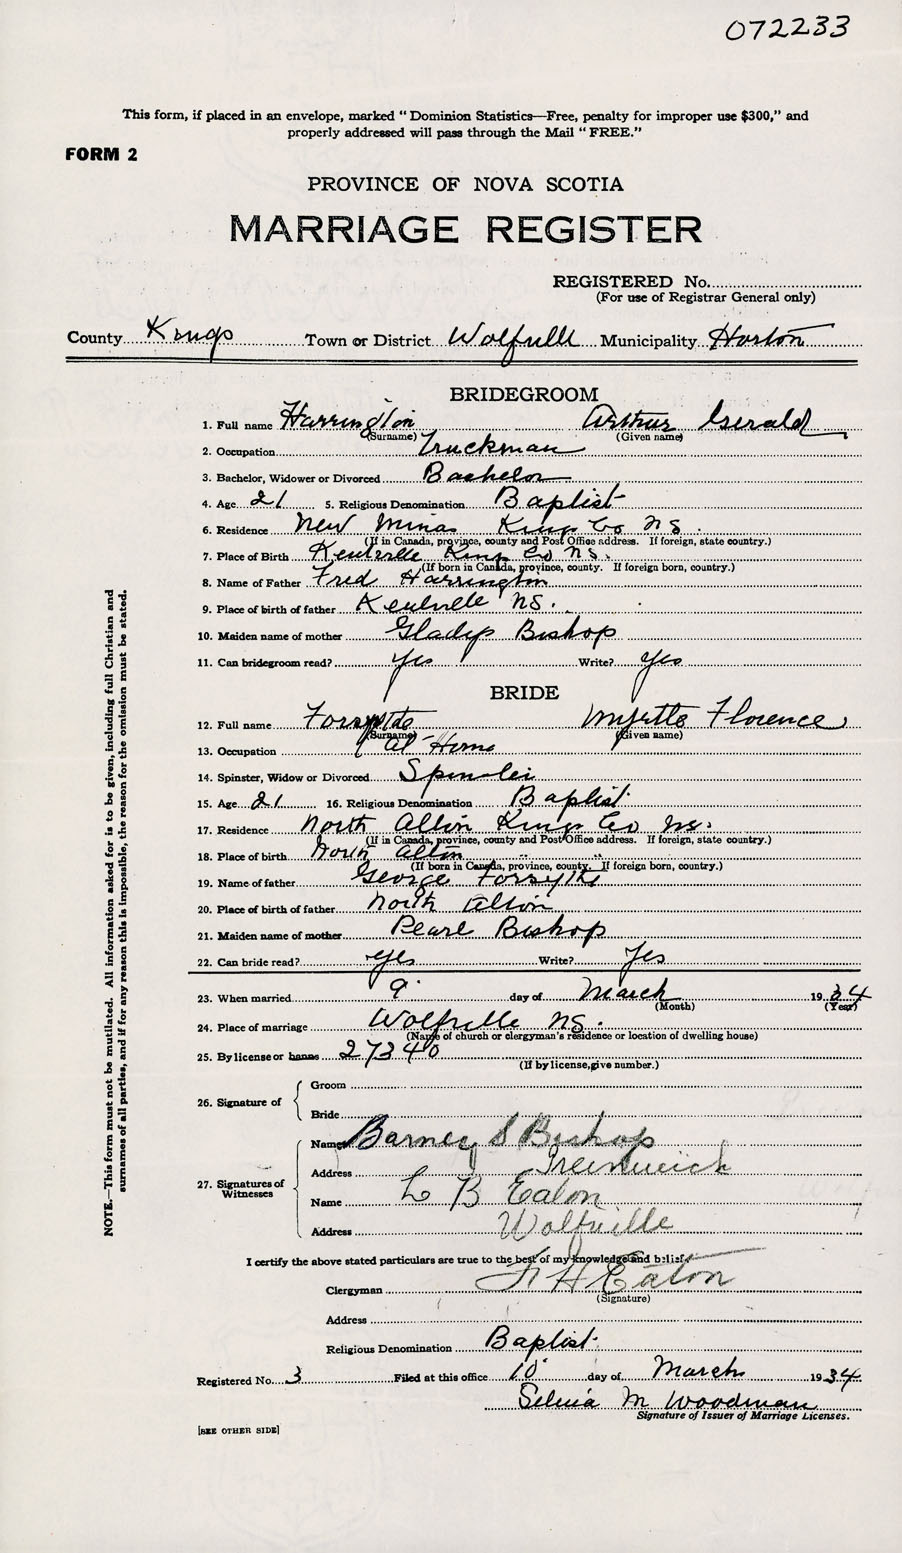 072233
This form, if placed in an envelope, marked "Dominion Statistics—Free, penalty for improper use $300," and
properly addressed will pass through the Mail "FREE."
FORM 2
PROVINCE OF NOVA SCOTIA
MARRIAGE REGISTER
REGISTERED No.
(For use of Registrar General only)
County Kings Town or District Wolfville Municipality Horton
BRIDEGROOM
1. Full name Harrington Arthur Gerald
(Surname) (Given name)
2. Occupation Truckman
3. Bachelor, Widower or Divorced Bachelor
4. Age 21 5. Religious Denomination Baptist
6. Residence New Minas Kings Co NS.
(If in Canada, province, county and Post Office address. If foreign, state country.)
7. Place of Birth Kentville Kings Co NS.
(If born in Canada, province, county. If foreign born, country.)
8. Name of Father Fred Harrington
9. Place of birth of father Kentville NS.
10. Maiden name of mother Gladys Bishop
11. Can bridegroom read? Yes Write? Yes
BRIDE
12. Full name Forsythe Myrtle Florence
(Surname) (Given name)
13. Occupation At Home
14. Spinster, Widow or Divorced Spinster
15. Age 21 16. Religious Denomination Baptist
17. Residence North Alton Kings Co NS.
(If in Canada, province, county and Post Office address. If foreign, state country.)
18. Place of birth North Alton " "
(If born in Canada, province, county. If foreign born, country.)
19. Name of father George Forsythe
20. Place of birth of father North Alton
21. Maiden name of mother Pearl Bishop
22. Can bride read? Yes Write? Yes
23. When married 9 day of March 1934
(Month) (Year)
24. Place of marriage Wolfville NS.
(Name of church or clergyman's residence or location of dwelling house)
25. By license or banns 27340
(If by license, give number.)
26. Signature of Groom
Bride
27. Signatures of Witnesses
Name Barney S Bishop
Address Greenwich
Name L B Eaton
Address Wolfville
I certify the above stated particulars are true to the best of my knowledge and belief.
Clergyman F H Eaton
(Signature)
Address
Religious Denomination Baptist
Registered No. 3 Filed at this office 10 day of March 1934
Silvia M Woodman
Signature of Issuer of Marriage Licenses.
[SEE OTHER SIDE]
NOTE.—This form must not be mutilated. All information asked for is to be given, including full Christian and
surnames of all parties, and if for any reason this is impossible, the reason for the omission must be stated.